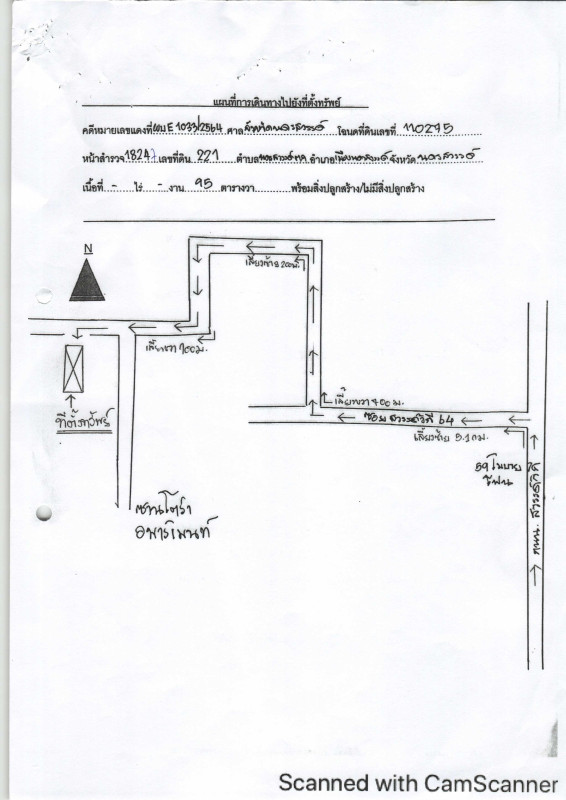 แผนที่การเดินทางไปยังที่ตั้งทรัพย์
คดีหมายเลขแดงที่ ผบ E 1033/2564 ศาล จังหวัดนครสวรรค์ โฉนดที่ดินเลขที่ 110275
หน้าสำรวจ 18247 เลขที่ดิน 221 ตำบล นครสวรรค์ตก อำเภอ เมืองนครสวรรค์ จังหวัด นครสวรรค์
เนื้อที่ - ไร่ - งาน 95 ตารางวา พร้อมสิ่งปลูกสร้าง/ไม่มีสิ่งปลูกสร้าง
N
เลี้ยวซ้าย 200 ม.
เลี้ยวขวา 700 ม.
เลี้ยวขวา 400 ม.
ที่ตั้งทรัพย์
ซอย สวรรค์วิถี 64
เลี้ยวซ้าย 5.1 กม.
59 โมบาย
โฟน
ถนน. สวรรค์วิถี
ซานโตร่า
อพาร์เมนท์
Scanned with CamScanner